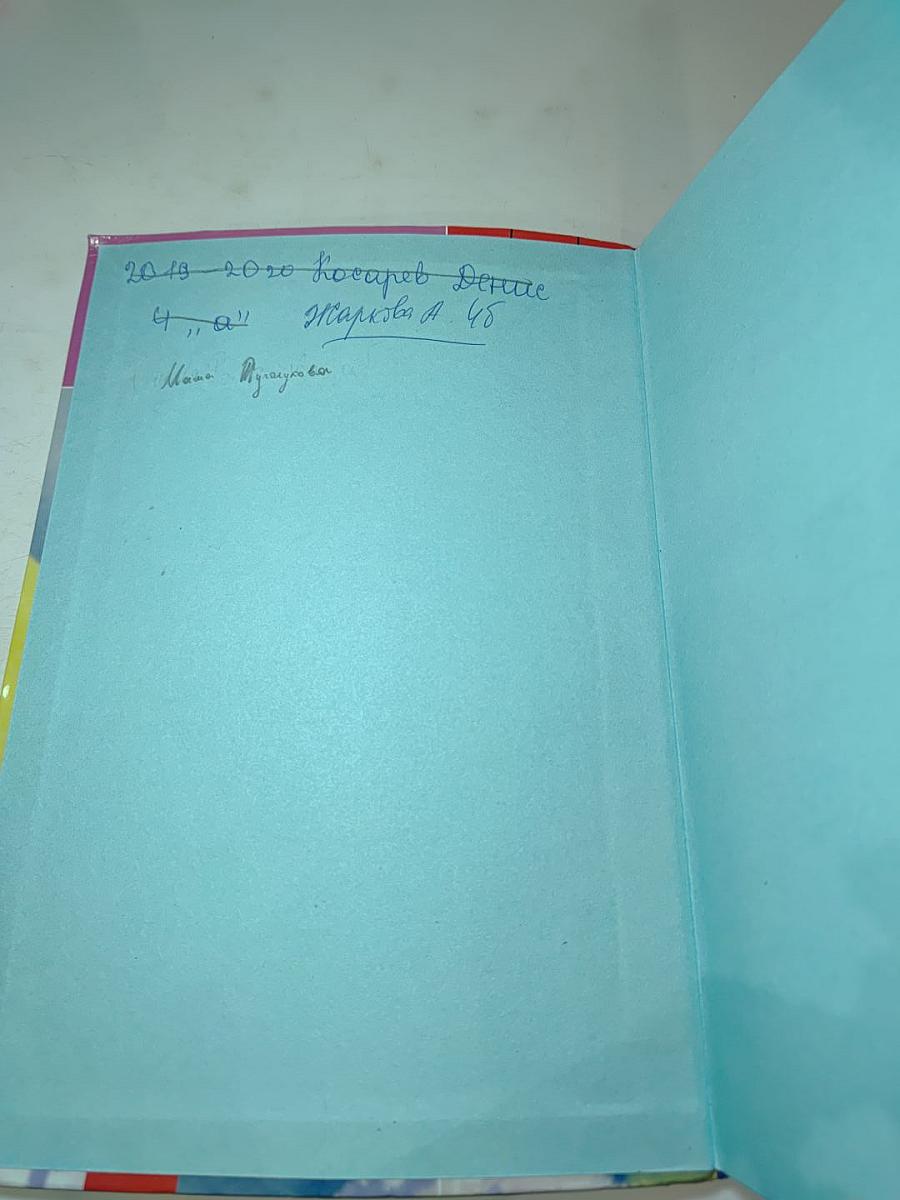 2019-2020 Косарев Денис
4 „а"
Жаркова А. 4б
Маша